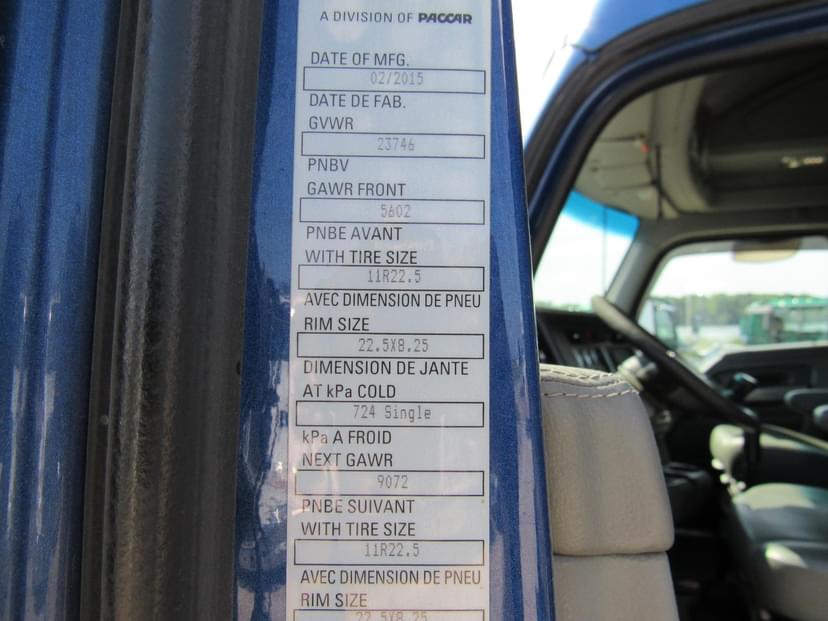 A DIVISION OF PACCAR
DATE OF MFG.
02/2015
DATE DE FAB.
GVWR
23746
PNBV
GAWR FRONT
5602
PNBE AVANT
WITH TIRE SIZE
11R22.5
AVEC DIMENSION DE PNEU
RIM SIZE
22.5X8.25
DIMENSION DE JANTE
AT kPa COLD
724 Single
kPa A FROID
NEXT GAWR
9072
PNBE SUIVANT
WITH TIRE SIZE
11R22.5
AVEC DIMENSION DE PNEU
RIM SIZE
22.5X8.25